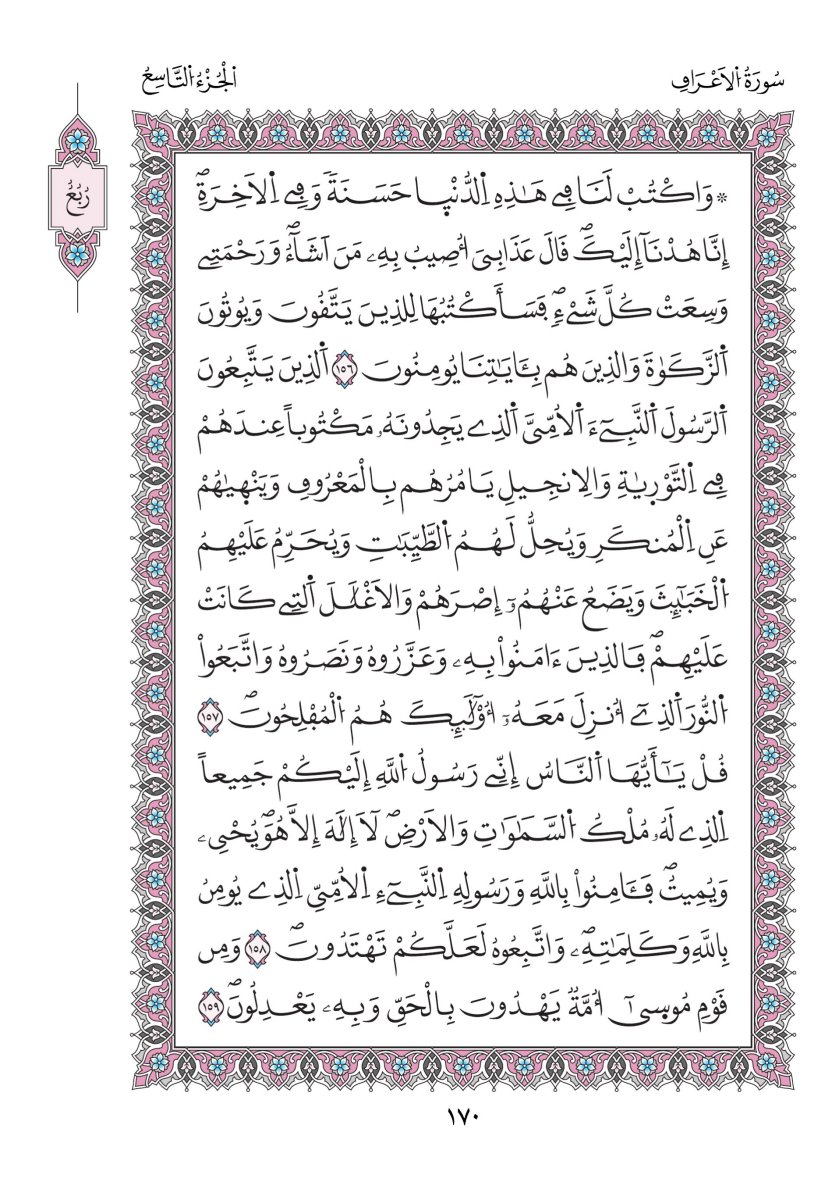 سُورَةُ اُلَاعْرَافِ
اُلْجُزْءُ اُلتَّاسِعُ
رُبُعُ
۞ وَاكْتُبْ لَنَا فِے هَٰذِهِ اِ۬لدُّنْي۪ا حَسَنَةٗ وَفِے اِ۬لَاخِرَةِۖ
إِنَّا هُدْنَآ إِلَيْكَۖ قَالَ عَذَابِيَ أُصِيبُ بِهِۦ مَنَ اَشَآءُۖ وَرَحْمَتِے
وَسِعَتْ كُلَّ شَےْءٖۖ فَسَأَكْتُبُهَا لِلذِينَ يَتَّقُونَ وَيُوتُونَ
اَ۬لزَّكَوٰةَ وَالذِينَ هُم بِـَٔايَٰتِنَا يُومِنُونَ ١٥٦ اَ۬لذِينَ يَتَّبِعُونَ
اَ۬لرَّسُولَ اَ۬لنَّبِےٓءَ اَ۬لُامِّيَّ اَ۬لذِے يَجِدُونَهُۥ مَكْتُوباً عِندَهُمْ
فِے اِ۬لتَّوْر۪يٰةِ وَالِانجِيلِ يَامُرُهُم بِالْمَعْرُوفِ وَيَنْه۪يٰهُمْ
عَنِ اِ۬لْمُنكَرِ وَيُحِلُّ لَهُمُ اُ۬لطَّيِّبَٰتِ وَيُحَرِّمُ عَلَيْهِمُ
اُ۬لْخَبَٰٓئِثَ وَيَضَعُ عَنْهُمُۥٓ إِصْرَهُمْ وَالَاغْلَٰلَ اَ۬لتِے كَانَتْ
عَلَيْهِمْۖ فَالذِينَ ءَامَنُواْ بِهِۦ وَعَزَّرُوهُ وَنَصَرُوهُ وَاتَّبَعُواْ
اُ۬لنُّورَ اَ۬لذِےٓ أُنزِلَ مَعَهُۥٓ أُوْلَٰٓئِكَ هُمُ اُ۬لْمُفْلِحُونَۖ ١٥٧
قُلْ يَٰٓأَيُّهَا اَ۬لنَّاسُ إِنِّے رَسُولُ اُ۬للَّهِ إِلَيْكُمْ جَمِيعاً
اِ۬لذِے لَهُۥ مُلْكُ اُ۬لسَّمَٰوَٰتِ وَالَارْضِۖ لَآ إِلَٰهَ إِلَّا هُوَۖ يُحْيِۦ
وَيُمِيتُۖ فَـَٔامِنُواْ بِاللَّهِ وَرَسُولِهِ اِ۬لنَّبِےٓءِ اِ۬لُامِّيِّ اِ۬لذِے يُومِنُ
بِاللَّهِ وَكَلِمَٰتِهِۦۖ وَاتَّبِعُوهُ لَعَلَّكُمْ تَهْتَدُونَۖ ١٥٨ وَمِن
قَوْمِ مُوس۪ىٰٓ أُمَّةٞ يَهْدُونَ بِالْحَقِّ وَبِهِۦ يَعْدِلُونَۖ ١٥٩
١٧٠